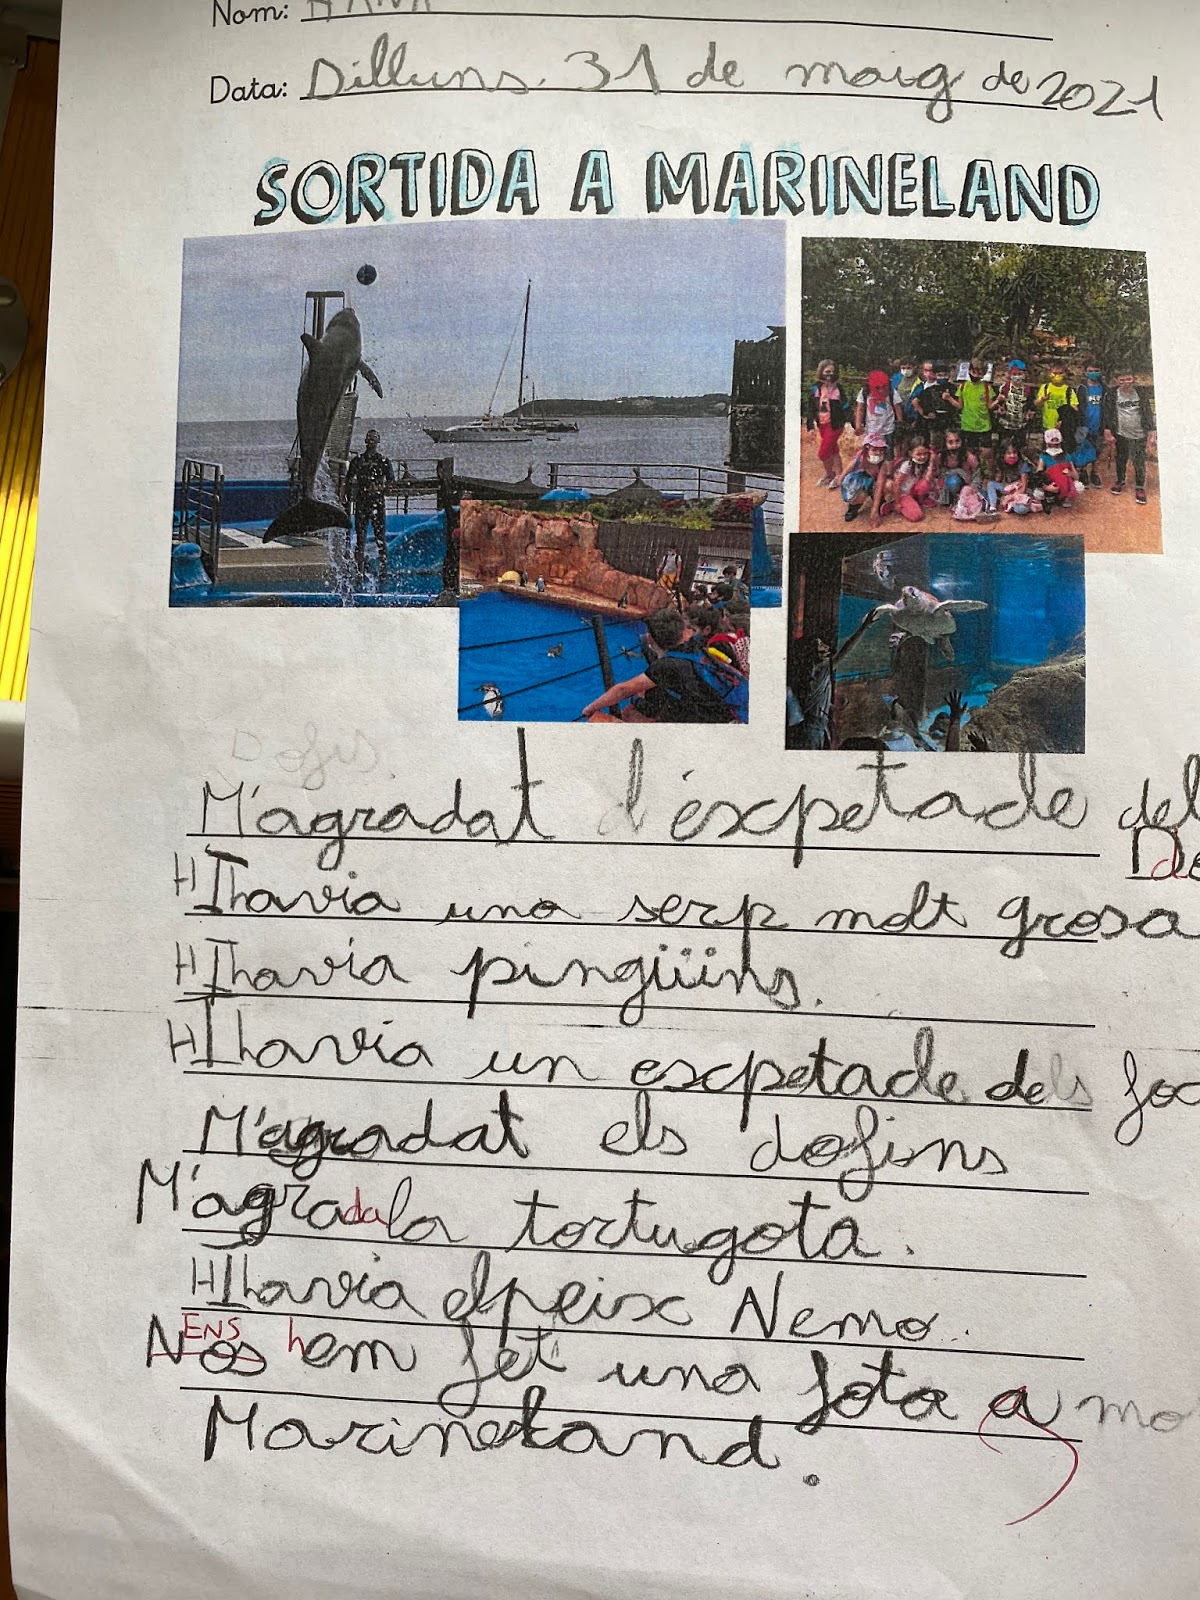 Nom:
Data: Dilluns. 31 de maig de 2021
SORTIDA A MARINELAND
Dofis.
M'agradat l'éxpetacle del
De
H Ihavia una serp molt grosa
H Ihavia pingüins.
H Ihavia un expetacle dels foc
M'agradat els dofins
M'agradada la tortugota.
H Ihavia el peix Nemo.
ENS
Nos hem fet una foto a mo
Marineland.